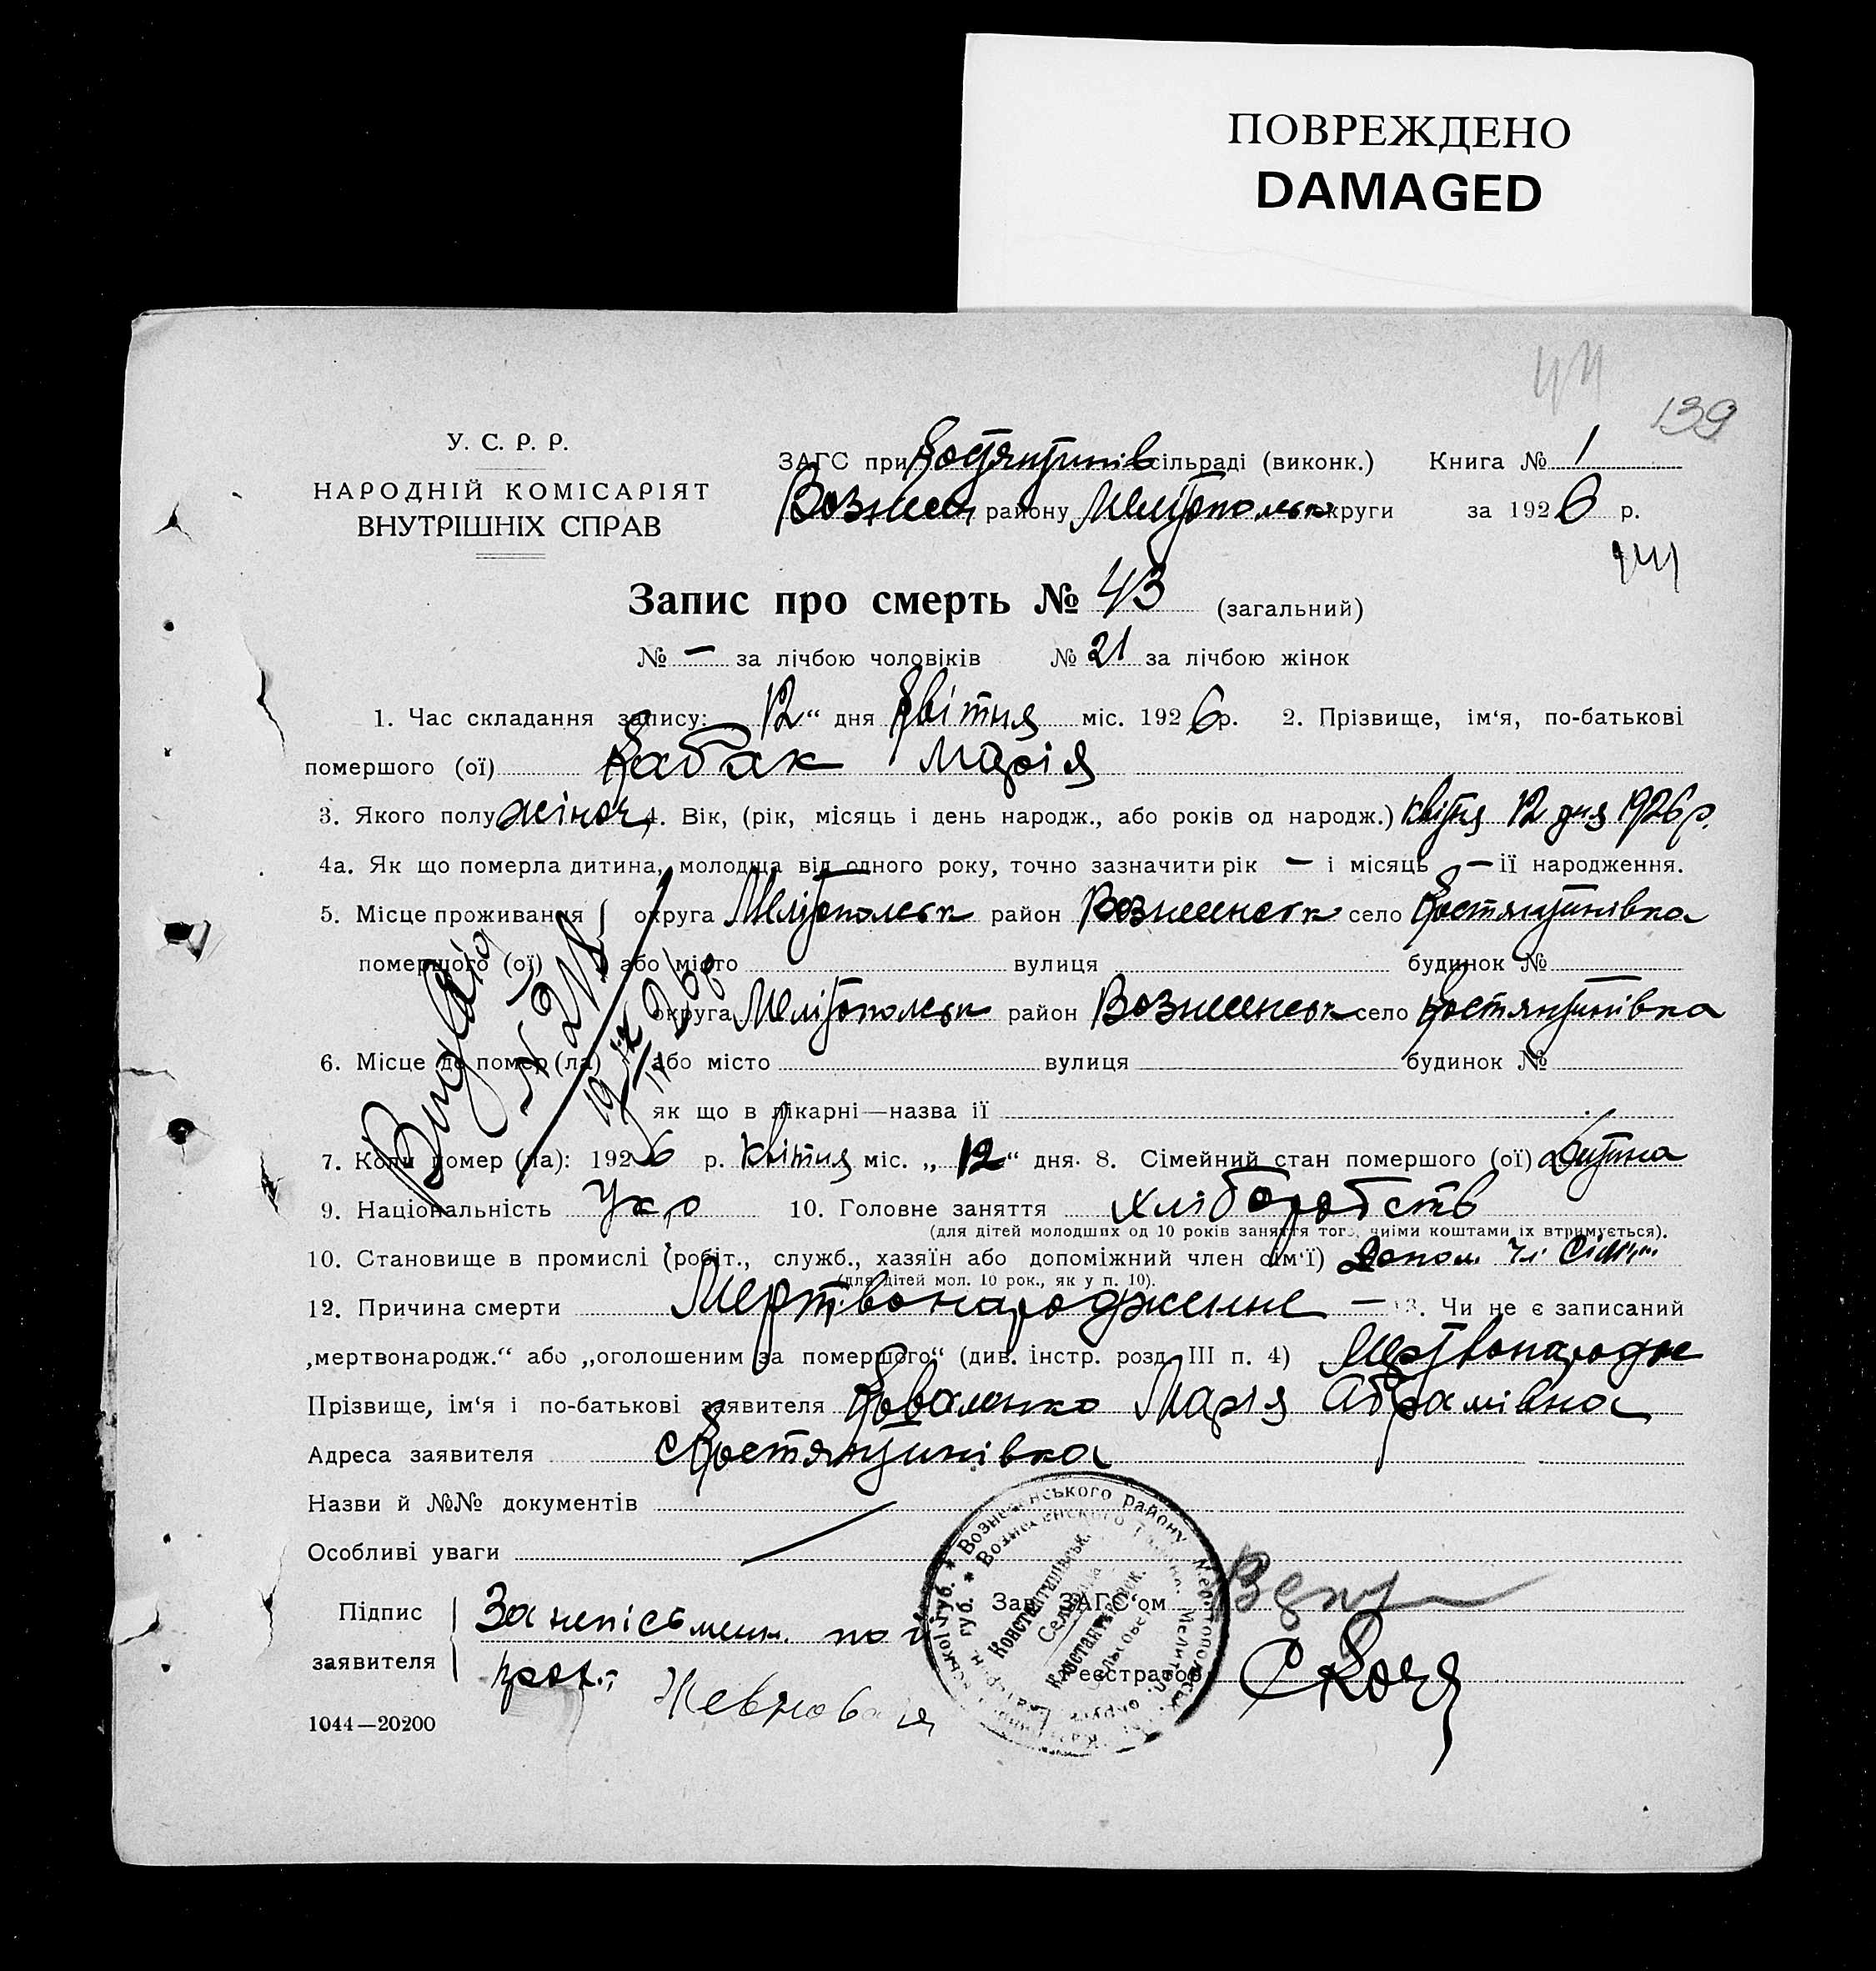 ПОВРЕЖДЕНО
DAMAGED
139
У. С. Р. Р.
НАРОДНІЙ КОМІСАРІЯТ
ВНУТРІШНІХ СПРАВ
ЗАГС при Костянтинів сільраді (виконк.) Книга № 1
Вознесен району Мелітопольськ округи за 1926 р.
Запис про смерть № 43 (загальний)
№ — за лічбою чоловіків № 21 за лічбою жінок
1. Час складання запису: 12“ дня Квітня міс. 1926 р. 2. Прізвище, ім‘я, по-батькові
помершого (ої) Кабак Марія
3. Якого полу жіноч 4. Вік, (рік, місяць і день народж., або років од народж.) Квітня 12 дня 1926 р.
4а. Як що померла дитина, молодща від одного року, точно зазначити рік — і місяць — ії народження.
5. Місце проживання округа Мелітопольськ район Вознесенськ село Костянтинівка
помершого (ої) або місто вулиця будинок №
округа Мелітопольськ район Вознесенськ село Костянтинівка
6. Місце де помер (ла) або місто вулиця будинок №
як що в лікарні—назва ії
7. Коли помер (ла): 1926 р. Квітня міс. „12“ дня. 8. Сімейний стан помершого (ої) Дитина
9. Національність Укр 10. Головне заняття хліборобств
(для дітей молодших од 10 років заняття того, чиіми коштами їх втримується).
10. Становище в промислі (робіт., служб., хазяїн або допоміжний член сім‘ї) Допом. чл сім'ї
(для дітей мол. 10 рок., як у п. 10).
12. Причина смерти Мертвонародженне — 13. Чи не є записаний
„мертвонародж.“ або „оголошеним за помершого“ (див. інстр. розд. III п. 4) Мертвонародже
Прізвище, ім‘я і по-батькові заявителя Коваленко Марія Абрамівна
Адреса заявителя с Костянтинівка
Назви й №№ документів
Особливі уваги
Підпис За непісьменн. по її Зав. ЗАГС‘ом
заявителя прох. Реєстратор
1044—20200